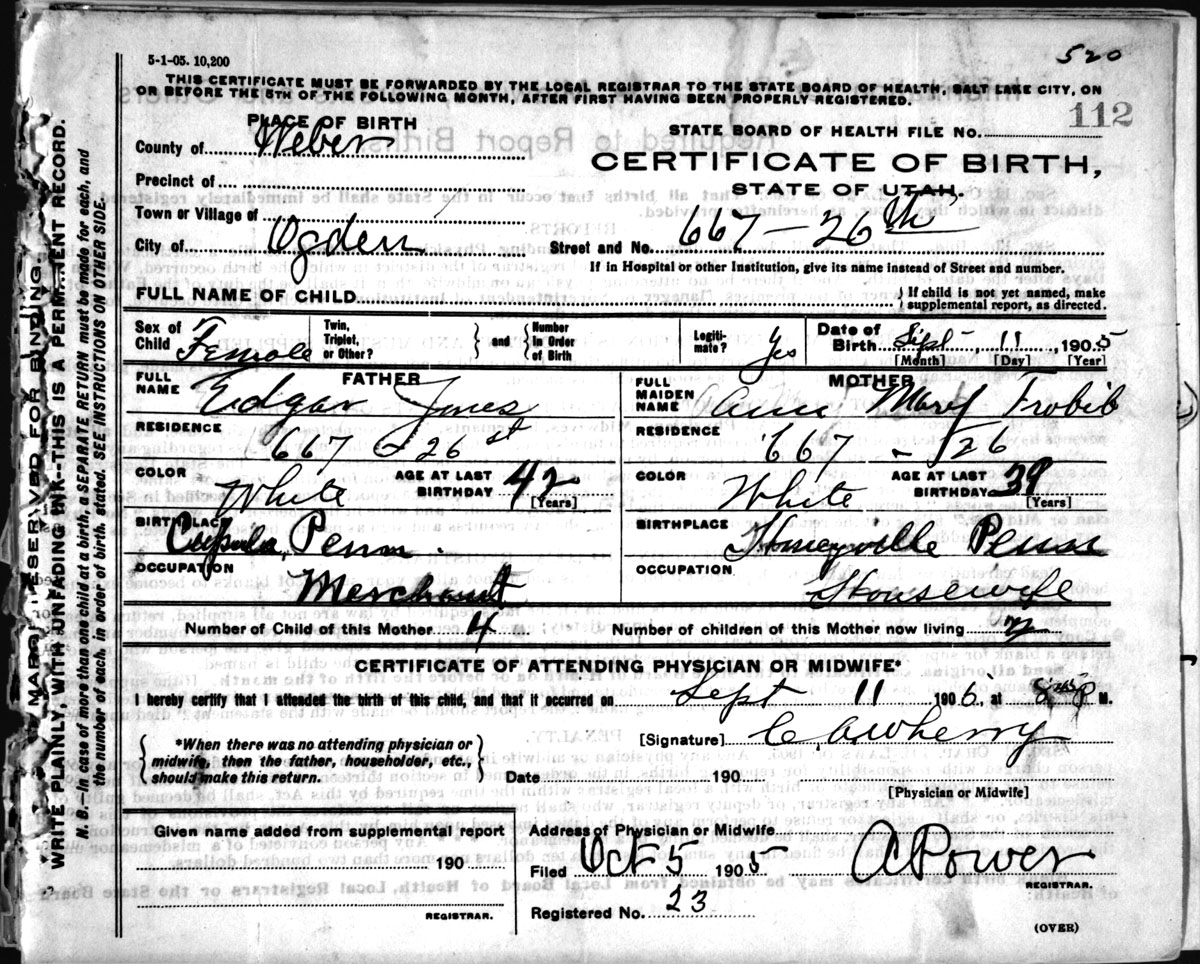 520
5-1-05. 10,200
THIS CERTIFICATE MUST BE FORWARDED BY THE LOCAL REGISTRAR TO THE STATE BOARD OF HEALTH, SALT LAKE CITY, ON
OR BEFORE THE 5TH OF THE FOLLOWING MONTH, AFTER FIRST HAVING BEEN PROPERLY REGISTERED.
112
PLACE OF BIRTH
STATE BOARD OF HEALTH FILE No.
County of Weber
CERTIFICATE OF BIRTH,
Precinct of
STATE OF UTAH.
Town or Village of
City of Ogden
Street and No. 667 - 26th
If in Hospital or other Institution, give its name instead of Street and number.
FULL NAME OF CHILD
If child is not yet named, make
supplemental report, as directed.
Sex of Child Female
Twin, Triplet, or Other?
and
Number in Order of Birth
Legitimate? Yes
Date of Birth Sept 11 1905
[Month] [Day] [Year]
FATHER
FULL NAME Edgar Jones
MOTHER
FULL MAIDEN NAME Ann Mary
RESIDENCE 667 26 st
RESIDENCE 667 - 26
COLOR White
AGE AT LAST BIRTHDAY 42 [Years]
COLOR White
AGE AT LAST BIRTHDAY 39 [Years]
BIRTHPLACE Penn.
BIRTHPLACE Penn
OCCUPATION Merchant
OCCUPATION Housewife
Number of Child of this Mother 4
Number of children of this Mother now living 2
CERTIFICATE OF ATTENDING PHYSICIAN OR MIDWIFE*
I hereby certify that I attended the birth of this child, and that it occurred on Sept 11 190 at M.
*When there was no attending physician or
midwife, then the father, householder, etc.,
should make this return.
[Signature] C Wherry
Date 190
[Physician or Midwife]
Given name added from supplemental report
190
REGISTRAR.
Address of Physician or Midwife
Filed Oct 5 1905
A Power
REGISTRAR.
Registered No. 23
(OVER)
MARGIN RESERVED FOR BINDING.
WRITE PLAINLY, WITH UNFADING INK--THIS IS A PERMANENT RECORD.
N. B.—In case of more than one child at a birth, a SEPARATE RETURN must be made for each, and
the number of each, in order of birth, stated. SEE INSTRUCTIONS ON OTHER SIDE.